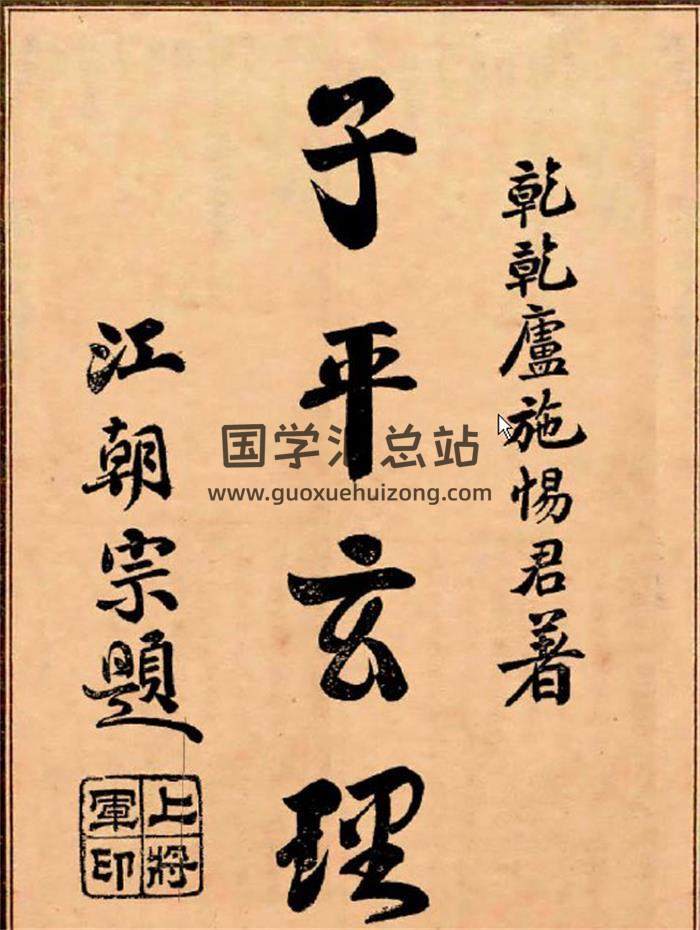 乾乾廬施惕君著
子平玄理
江朝宗題
上將軍印
国学汇总站
www.guoxuehuizong.com